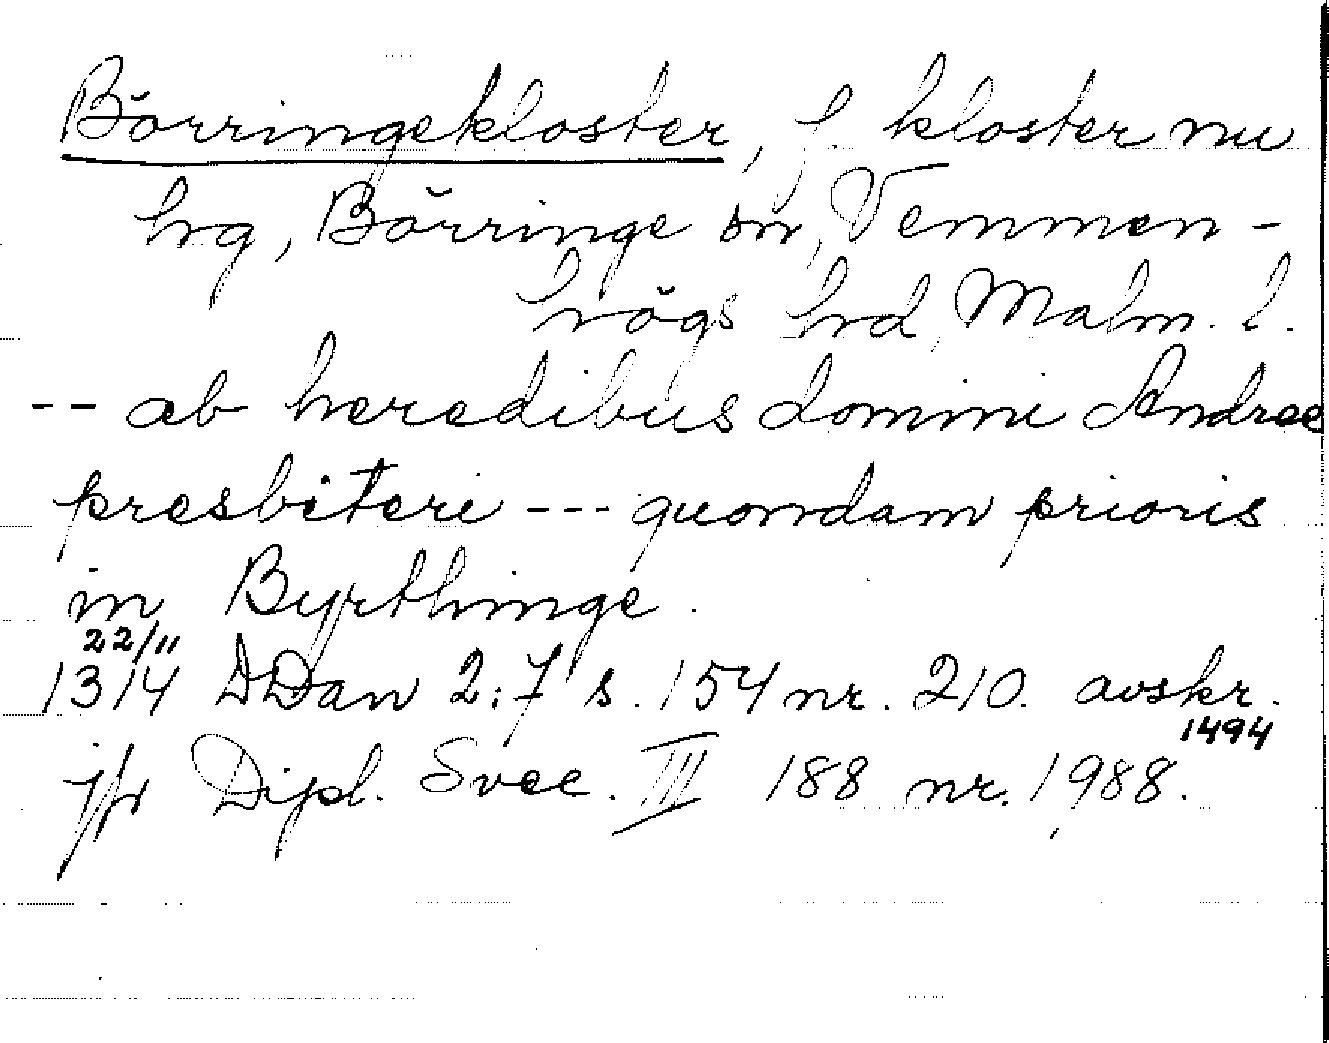 Börringekloster, f. kloster nu
hrg, Börringe sn, Vemmen-
högs hrd, Malm. l.
-- ab heredibus domini Andree
presbiteri --- quondam prioris
in Byrthinge.
22/11
1314 DDan 2:7 s. 154 nr. 210. avskr.
1494
jfr Dipl. Svec. III 188 nr. 1988.